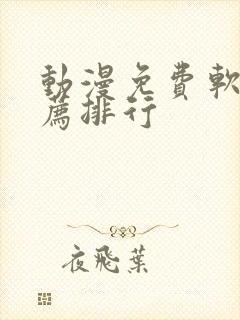 動漫免費軟
薦排行
夜飛葉